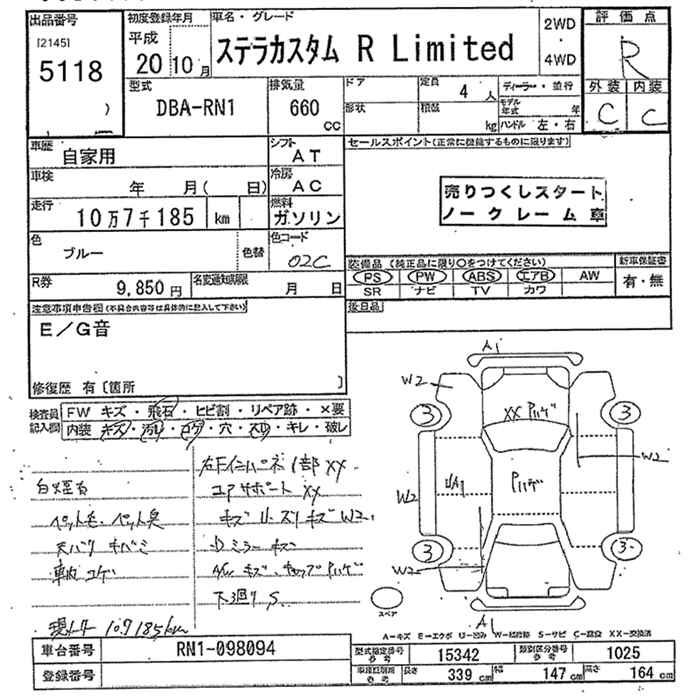 出品番号 初度登録年月 車名・グレード 2WD ・ 4WD 評価点
[2145] 5118 平成 20年 10月 ステラカスタム R Limited R
型式 DBA-RN1 排気量 660 cc ドア 形状 定員 4人 積載 kg ディーラー・並行 モデル年式 年 ハンドル 左・右 外装 C 内装 C
車歴 自家用 シフト AT セールスポイント(正常に機能するものに限ります)
車検 年 月( 日) 冷房 AC
売りつくしスタート
ノークレーム車
走行 10万7千185 km 燃料 ガソリン
色 ブルー 色替 色コード 02C
装備品 (純正品に限り○をつけてください) 新車保証書
PS PW ABS エアB AW 有・無
SR ナビ TV カワ
R券 9,850円 名変通知期限 月 日
後日品
注意事項申告欄(不具合内容等は具体的に記入して下さい)
E/G音
修復歴 有〔箇所 〕
検査員記入欄 FW キズ・飛石・ヒビ割・リペア跡・×要
内装 キズ・汚レ・コゲ・穴・スレ・キレ・破レ
左F インナーパネ 1部 XX
コアサポート XX
ペット毛、ペット臭 キズ U ズリキズ W2
天バリ キバミ ドミラー キズ
車内 コゲ A/W キズ、キャップ Pハゲ
下廻り S
現メーター 10.7185km
A1
W2
3 XXPハゲ 3
W2
UA1 Pハゲ
W2
3 3
W2
A1
スペア
A-キズ E-エクボ U-凹み W-補修跡 S-サビ C-腐食 XX-交換済
車台番号 RN1-098094 型式指定番号 参考 15342 類別区分番号 参考 1025
登録番号 車検証記載 参考 長さ 339cm 幅 147cm 高さ 164cm